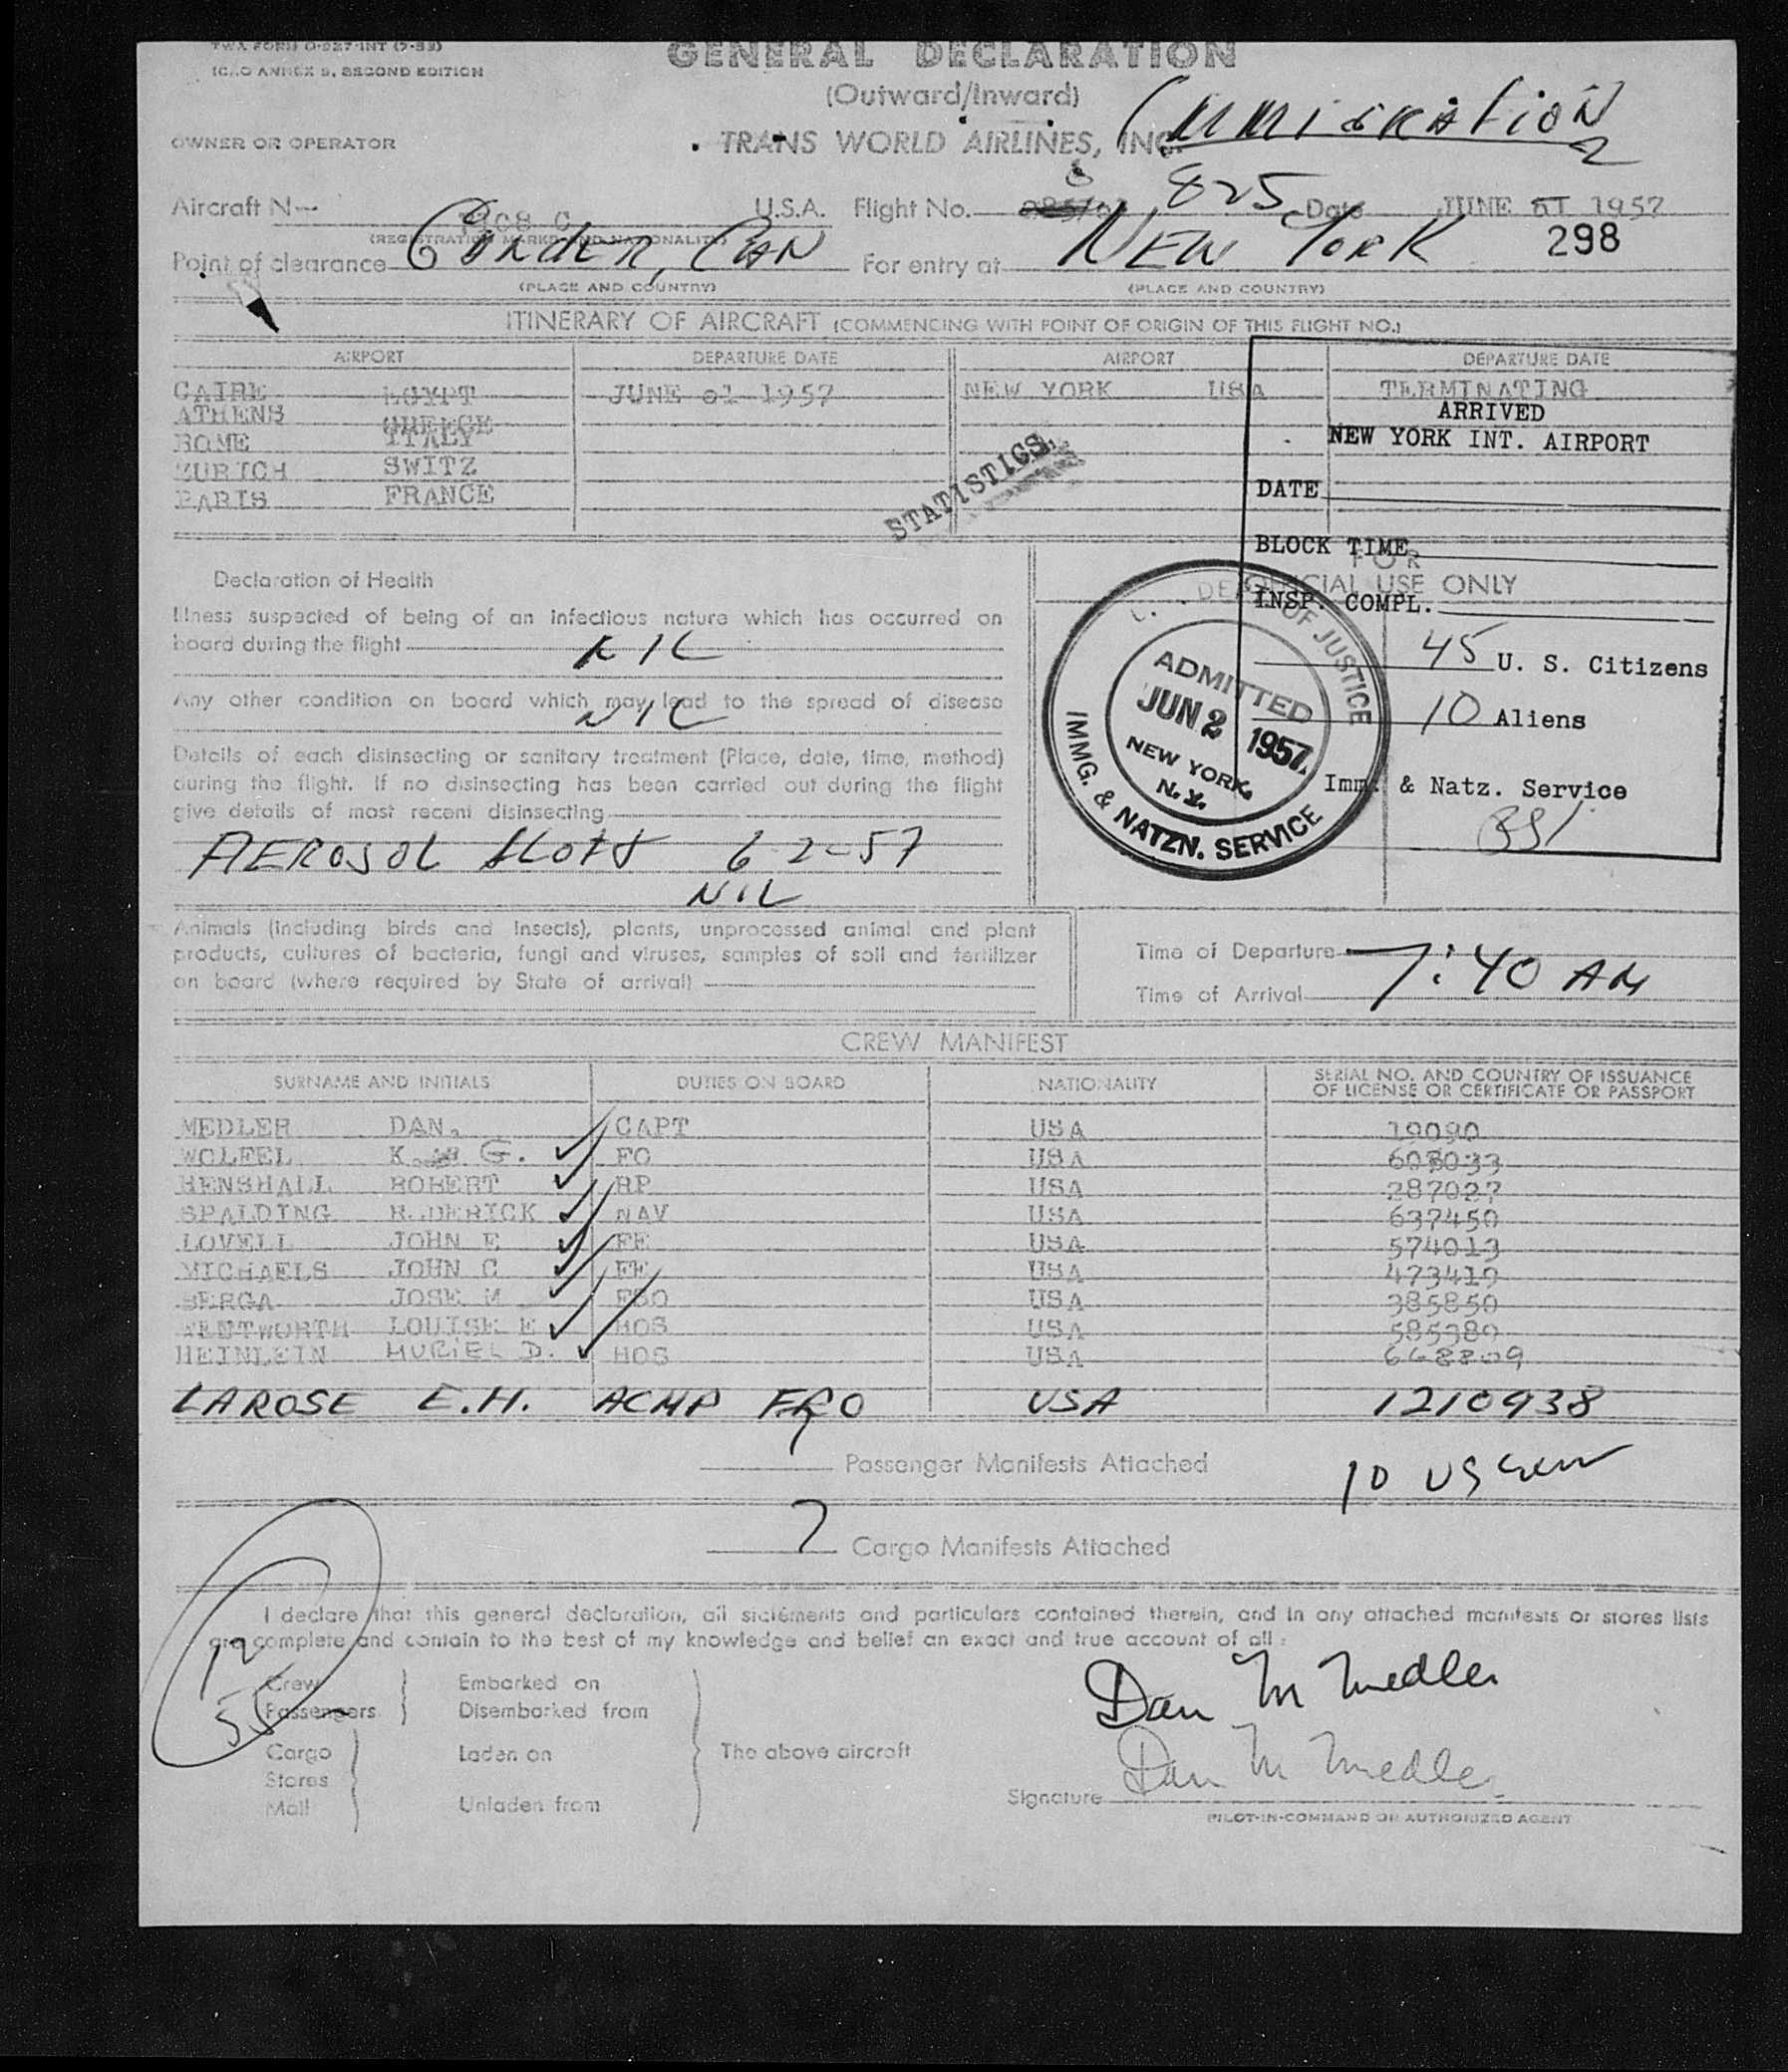 TWA FORM O-927-INT (7-53)
ICAO ANNEX 9, SECOND EDITION
GENERAL DECLARATION
(Outward/Inward)
Immigration
2
OWNER OR OPERATOR
TRANS WORLD AIRLINES, INC.
Aircraft N U.S.A. Flight No. 825 Date JUNE 01 1957
(REGISTRATION MARKS AND NATIONALITY)
298
Point of clearance GANDER, CAN For entry at NEW YORK
(PLACE AND COUNTRY) (PLACE AND COUNTRY)
ITINERARY OF AIRCRAFT (COMMENCING WITH POINT OF ORIGIN OF THIS FLIGHT NO.)
AIRPORT DEPARTURE DATE AIRPORT DEPARTURE DATE
CAIRE EGYPT JUNE 01 1957 NEW YORK USA TERMINATING
ATHENS GREECE
ROME ITALY
ZURICH SWITZ
PARIS FRANCE
STATISTICS
ARRIVED
NEW YORK INT. AIRPORT
DATE
BLOCK TIME
FOR
OFFICIAL USE ONLY
INSP. COMPL.
45 U. S. Citizens
10 Aliens
Imm. & Natz. Service
DEPT OF JUSTICE
ADMITTED
JUN 2 1957
NEW YORK,
N.Y.
IMMG. & NATZN. SERVICE
Declaration of Health
Illness suspected of being of an infectious nature which has occurred on
board during the flight NIL
Any other condition on board which may lead to the spread of disease
NIL
Details of each disinsecting or sanitary treatment (Place, date, time, method)
during the flight. If no disinsecting has been carried out during the flight
give details of most recent disinsecting
AEROSOL 6-2-57
NIL
Animals (including birds and insects), plants, unprocessed animal and plant
products, cultures of bacteria, fungi and viruses, samples of soil and fertilizer
on board (where required by State of arrival)
Time of Departure
Time of Arrival 7:40 AM
CREW MANIFEST
SURNAME AND INITIALS DUTIES ON BOARD NATIONALITY SERIAL NO. AND COUNTRY OF ISSUANCE
OF LICENSE OR CERTIFICATE OR PASSPORT
MEDLER DAN. CAPT USA 19090
WOLFEL K G. FO USA 603033
HENSHALL ROBERT RP USA 287027
SPALDING RODERICK NAV USA 637450
LOVELL JOHN E FE USA 574013
MICHAELS JOHN C FE USA 473419
BERGA JOSE M FSO USA 385850
WENTWORTH LOUISE E HOS USA 585389
HEINLEIN MURIEL D. HOS USA 668809
LAROSE E.H. ACMP FRO USA 1210938
7 Passenger Manifests Attached
10 US Crew
7 Cargo Manifests Attached
I declare that this general declaration, all statements and particulars contained therein, and in any attached manifests or stores lists
are complete and contain to the best of my knowledge and belief an exact and true account of all:
Crew Embarked on
55 Passengers Disembarked from
Cargo Laden on The above aircraft
Stores
Mail Unladen from
Dan M Medler
Dan M Medler
Signature
PILOT-IN-COMMAND OR AUTHORIZED AGENT